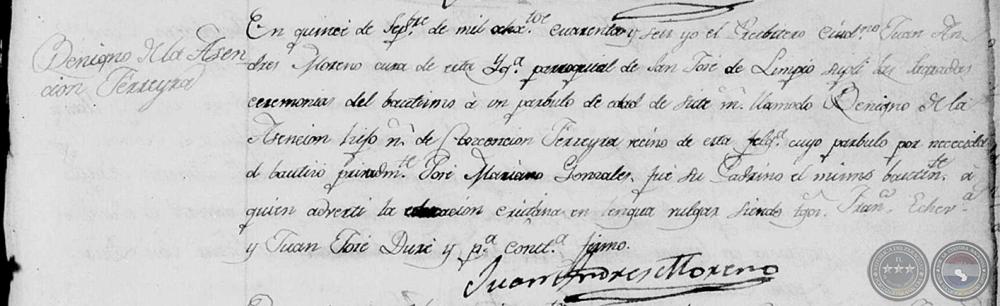 Benigno de la Asen
cion Ferreyra
En quince de Sepᵗʳᵉ de mil ochᵗᵒˢ cuarenta y seis yo el Presbitero Ciudⁿᵒ Juan An
dres Moreno cura de esta Ygᵃ parroquial de San José de Limpio supli las sagradas
ceremonias del bautismo à un parbulo de edad de siete mˢ llamado Benigno de la
Asencion hijo nˡ de Concencion Ferreyra vecino de esta feligᵃ cuyo parbulo por necesidad
el bautizo privadmᵗᵉ José Mariano Gonzales, fue su Padrino el mismo bautinᵗᵉ à
quien adverti la cristiana en lengua vulgar siendo tgoˢ Franᶜᵒ Echevᵃ
y Juan José Duré y pᵃ constᵃ firmo.
Juan Andres Moreno